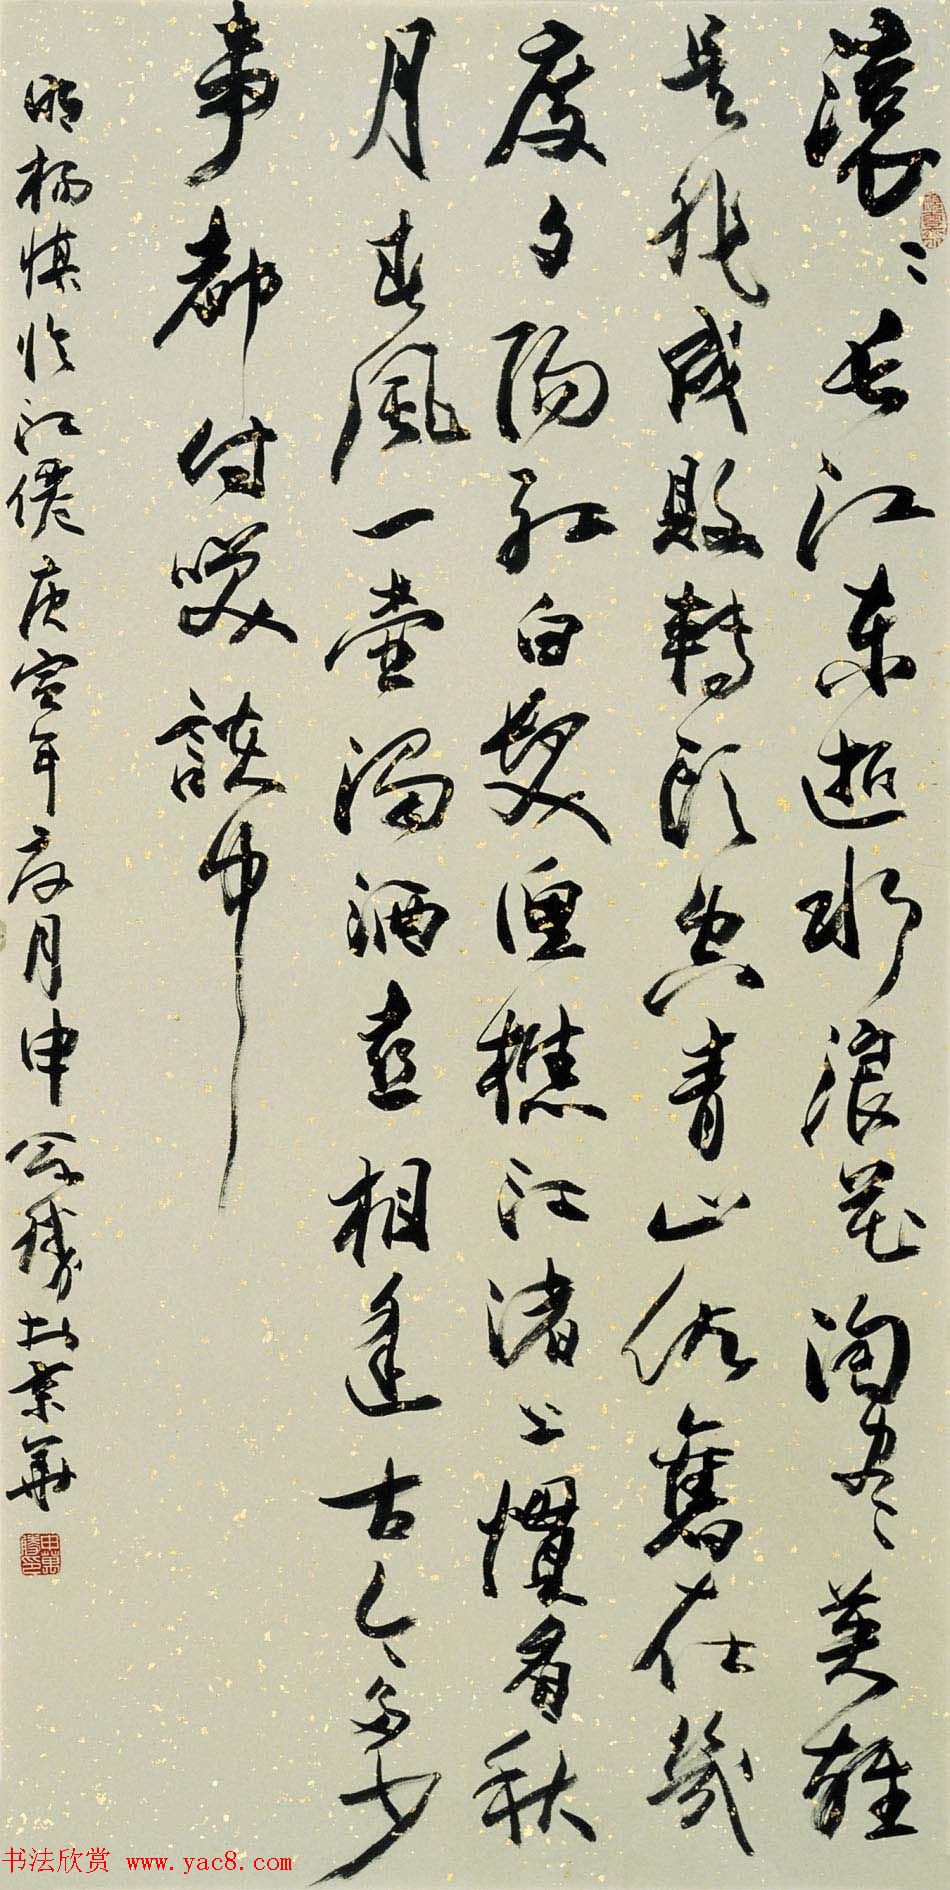 滚〻长江东逝水浪花淘尽英雄
是非成败转头空青山依旧在几
度夕阳红白发渔樵江渚上惯看秋
月春风一壶浊酒喜相逢古今多少
事都付笑谈中
明杨慎临江仙庚寅年
月申万胜书京华
申万胜印
书法欣赏 www.yac8.com